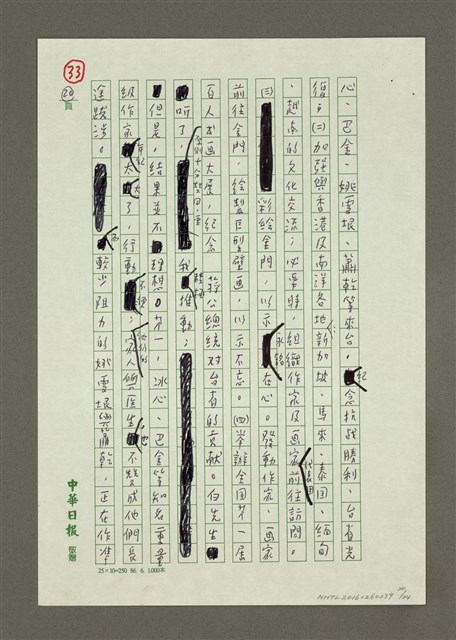 33
20頁
心、巴金、姚雪垠、蕭乾等來台,紀念抗戰勝利、台省光
復;(二)加強與香港及南洋各地:新加坡、馬來、泰國、緬甸
、越南的文化交流;必要時,組織作家及画家代表團前往訪問。
(三)彩繪金門,以示永銘在心。發動作家、画家
前往金門,繪製巨型壁画,以示不忘。(四)舉辦全國第一屆
百人書画大展,紀念蔣公總統對台省的貢獻。白先生
聽了,原則十分贊同,要我推動;
但是,結果並不理想。第一,冰心、巴金等知名重量
級作家,年紀太大了,行動不便;家人與医生也不贊成他們長
途跋涉。而較少阻力的姚雪垠與蕭乾,正在作準
中華日報
稿紙
25×10=250 86.6.1,000本
NMTL20160260039